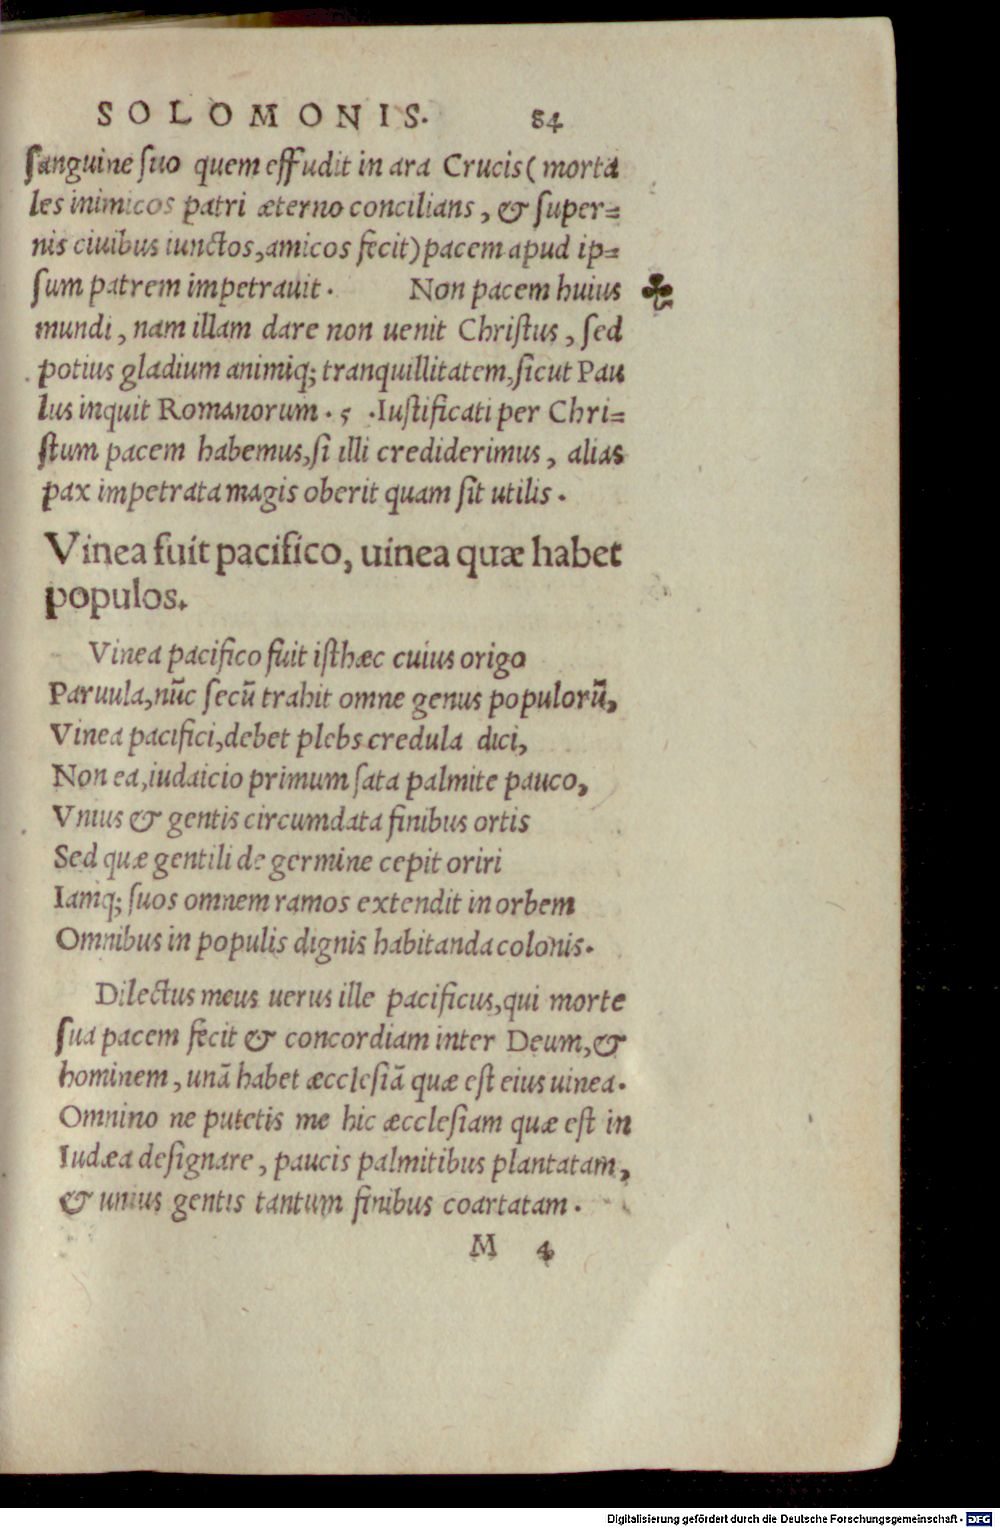 SOLOMONIS. 84
sanguine suo quem effudit in ara Crucis (morta
les inimicos patri æterno concilians, & super=
nis ciuibus iunctos, amicos fecit) pacem apud ip=
sum patrem impetrauit. Non pacem huius ☘
mundi, nam illam dare non uenit Christus, sed
potius gladium animiq; tranquillitatem, sicut Pau
lus inquit Romanorum. 5. Iustificati per Chri=
stum pacem habemus, si illi crediderimus, alias
pax impetrata magis oberit quam sit utilis.
Vinea fuit pacifico, uinea quæ habet
populos.
Vinea pacifico fuit isthæc cuius origo
Paruula, nũc secũ trahit omne genus populorũ,
Vinea pacifici, debet plebs credula dici,
Non ea, iudaicio primum sata palmite pauco,
Vnius & gentis circumdata finibus ortis
Sed quæ gentili de germine cepit oriri
Iamq; suos omnem ramos extendit in orbem
Omnibus in populis dignis habitanda colonis.
Dilectus meus uerus ille pacificus, qui morte
sua pacem fecit & concordiam inter Deum, &
hominem, unã habet æcclesiã quæ est eius uinea.
Omnino ne putetis me hic æcclesiam quæ est in
Iudæa designare, paucis palmitibus plantatam,
& unius gentis tantum finibus coartatam.
M 4
Digitalisierung gefördert durch die Deutsche Forschungsgemeinschaft - DFG